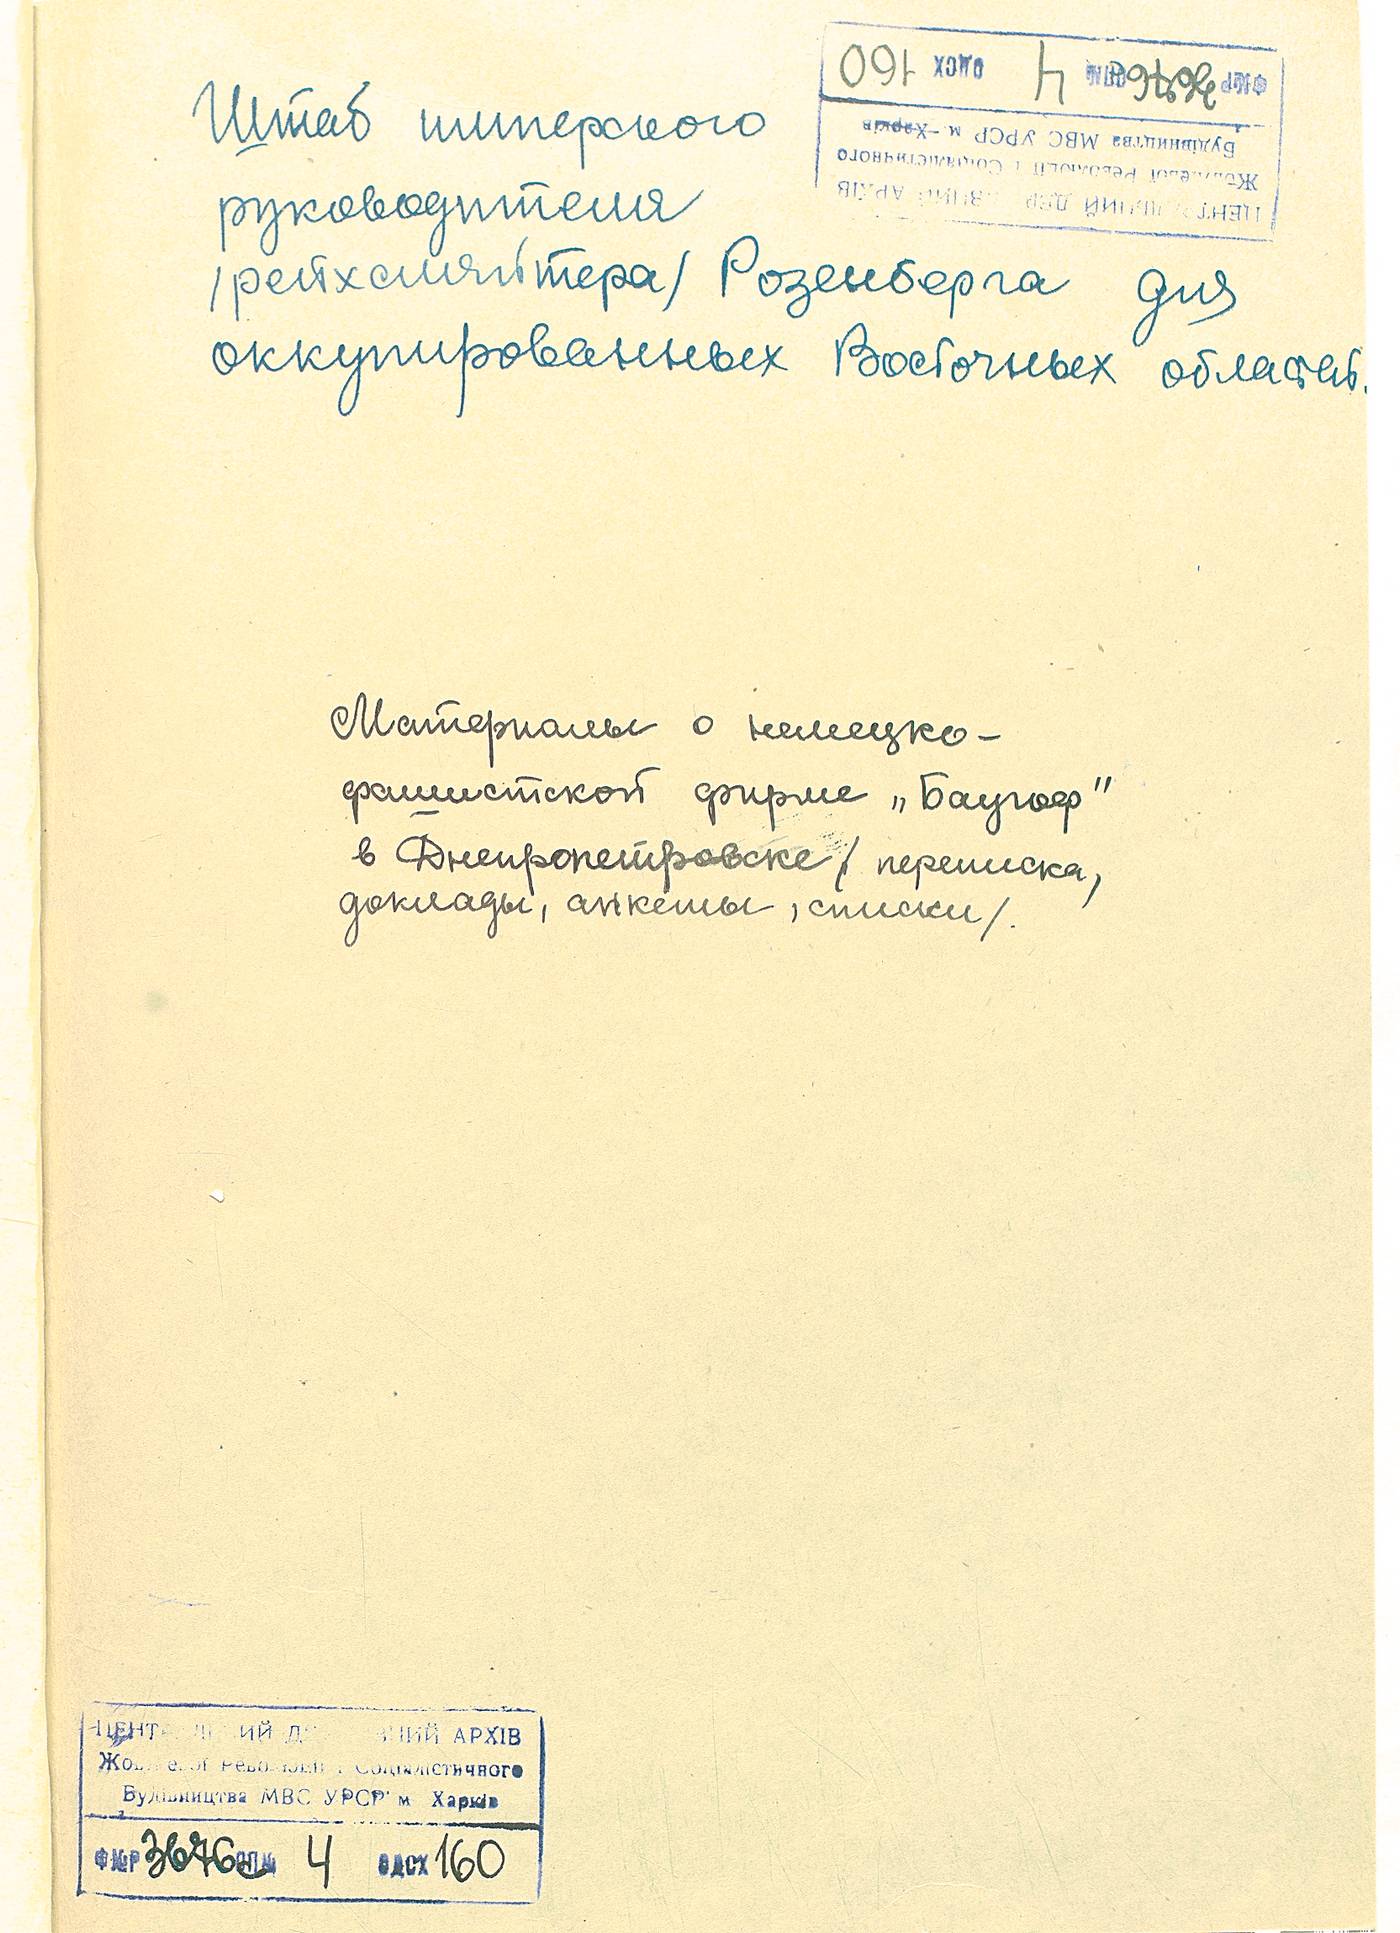 Штаб имперского
руководителя
/рейхсляйтера/ Розенберга для
оккупированных Восточных областей.
ФМР 3676 ОПМ 4 ОДСХ 160
ЦЕНТРАЛЬНИЙ ДЕРЖАВНИЙ АРХІВ
Жовтневої Революції і Соціалістичного
Будівництва МВС УРСР м. Харків
Материалы о немецко-
фашистской фирме „Баугоф"
в Днепропетровске /переписка,
доклады, анкеты, списки/.
ЦЕНТРАЛЬНИЙ ДЕРЖАВНИЙ АРХІВ
Жовтневої Революції і Соціалістичного
Будівництва МВС УРСР м Харків
ФМР 3676 ОПМ 4 ОДСХ 160